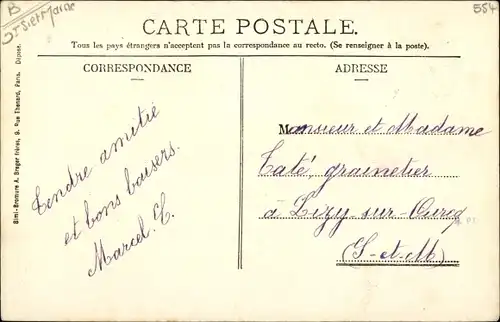 B
554
CARTE POSTALE.
Tous les pays étrangers n'acceptent pas la correspondance au recto. (Se renseigner à la poste).
CORRESPONDANCE
ADRESSE
Simi-Bromure A. Breger frères, 9, Rue Thenard, Paris. Déposé.
Tendre amitié
et bons baisers.
Marcel. C.
Monsieur et Madame
Taté, grainetier
à Lizy-sur-Ourcq
(S-et-M)